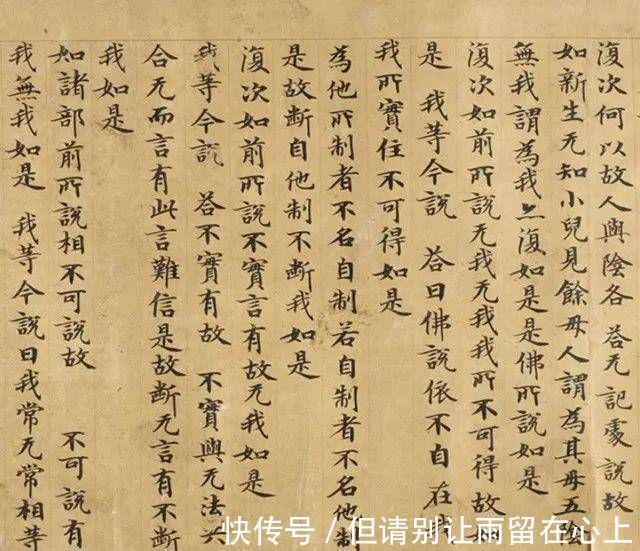 復次何以故人與陰各 荅无記處說故
如新生无知小兒見餘母人謂為其母五陰
無我謂為我亦復如是是佛所說如是
復次如前所說无我无我我所不可得故
是 我等今說 荅曰佛說依不自在我
我所實住不可得如是
為他所制者不名自制若自制者不名他制
是故断自他制不断我如是
復次如前所說不實言有故无我如是
我等今說 荅不實有故 不實與无法
合无而言有此言難信是故断无言有不断
我如是
如諸部前所說相不可說故 不可說有
我無我如是 我等今說曰我常无常相等
快传号/但请别让雨留在心上